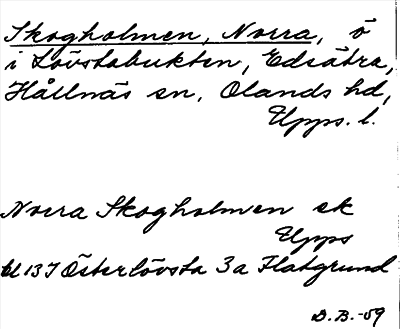 Skogholmen, Norra, ö
i Lövstabukten, Edsätra,
Hållnäs sn, Olands hd,
Upps. l.
Norra Skogholmen ek
Upps
bl 137 Österlövsta 3a Flatgrund
D.B.-59